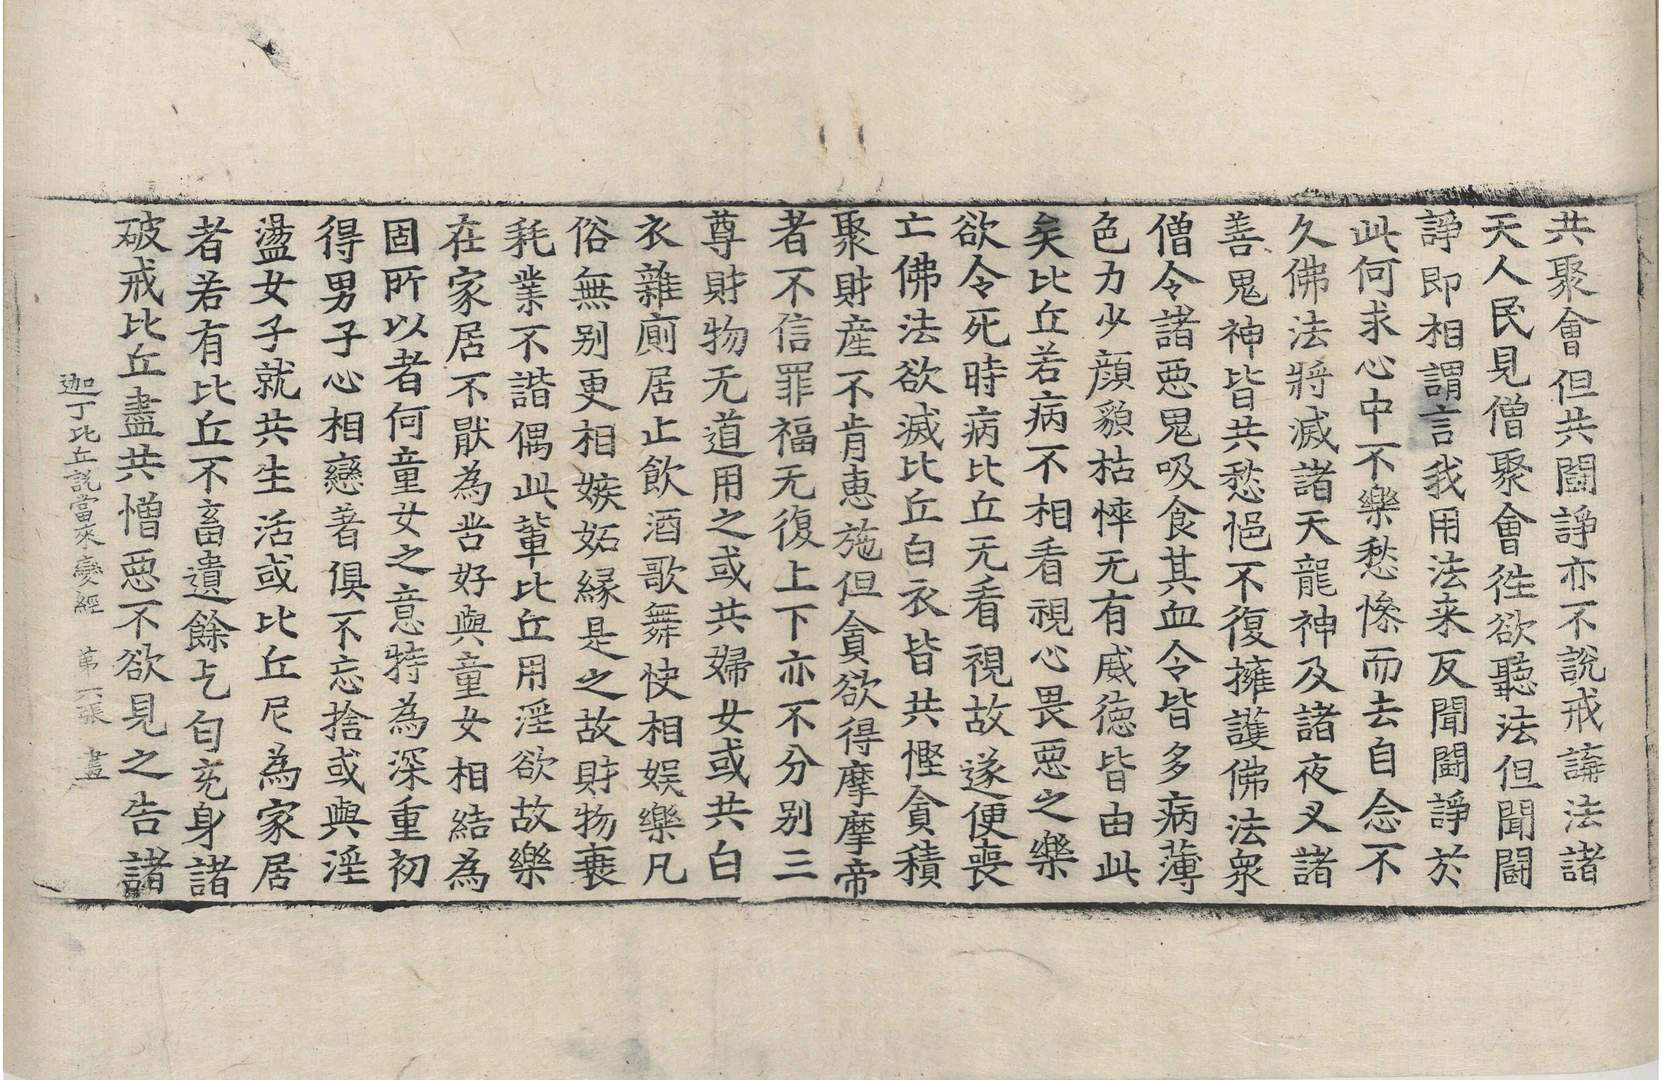 共聚會但共鬪諍亦不說戒講法諸
天人民見僧聚會徃欲聽法但聞鬪
諍即相謂言我用法来反聞鬪諍於
此何求心中不樂愁慘而去自念不
久佛法將滅諸天龍神及諸夜叉諸
善鬼神皆共愁悒不復擁護佛法衆
僧令諸惡鬼吸食其血令皆多病薄
色力少顔貌枯悴无有威徳皆由此
矣比丘若病不相看視心畏惡之樂
欲令死時病比丘无看視故遂便喪
亡佛法欲滅比丘白衣皆共慳貪積
聚財産不肯惠施但貪欲得摩摩帝
者不信罪福无復上下亦不分别三
尊財物无道用之或共婦女或共白
衣雜廁居止飲酒歌舞快相娱樂凡
俗無别更相嫉妬縁是之故財物衰
耗業不諧偶此輩比丘用淫欲故樂
在家居不猒為苦好與童女相結為
固所以者何童女之意特為深重初
得男子心相戀著俱不忘捨或與淫
盪女子就共生活或比丘尼為家居
者若有比丘不畜遺餘乞匂充身諸
破戒比丘盡共憎惡不欲見之告諸
迦丁比丘說當來變經 苐六張 盡